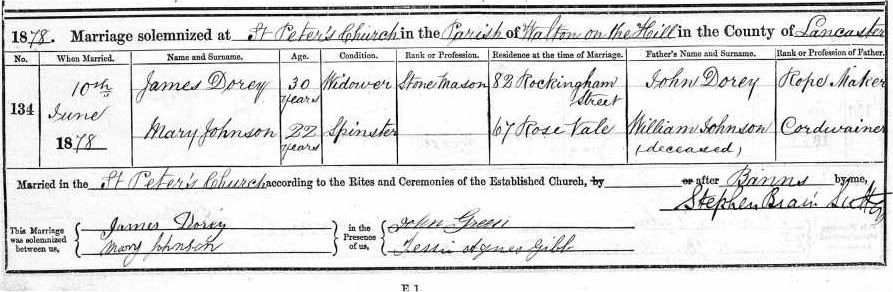 1878. Marriage solemnized at St Peter's Church in the Parish of Walton on the Hill in the County of Lancaster
No. When Married. Name and Surname. Age. Condition. Rank or Profession. Residence at the time of Marriage. Father's Name and Surname. Rank or Profession of Father.
134 10th June 1878 James Dorey 30 years Widower Stone Mason 82 Rockingham Street John Dorey Rope Maker
Mary Johnson 22 years Spinster 67 Rose Vale William Johnson (deceased) Cordwainer
Married in the St Peter's Church according to the Rites and Ceremonies of the Established Church, by or after Banns by me,
Stephen Brain
This Marriage was solemnized between us, James Dorey Mary Johnson in the Presence of us, John Green Agnes Gibb
E 1